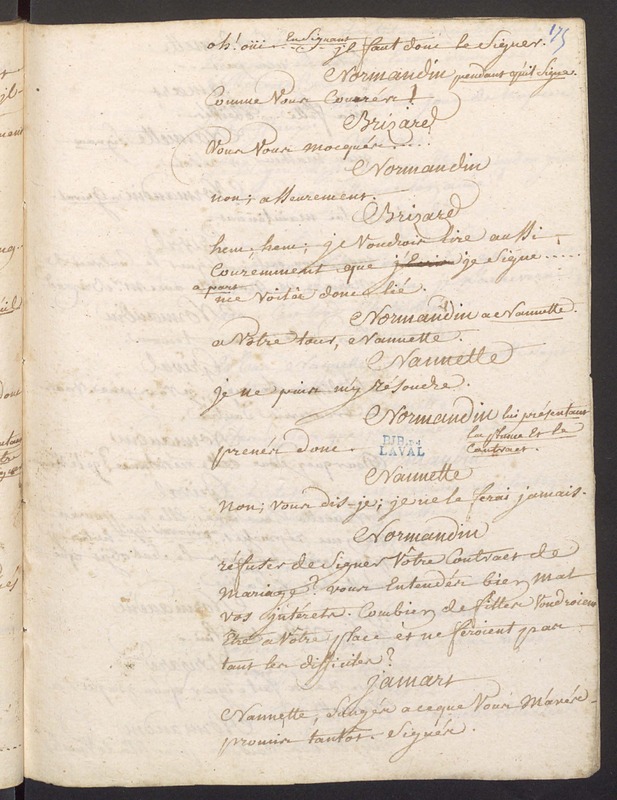 175
oh! oüi <u>En Signant</u> jl faut donc le Signer.
Normandin pendant qu'il Signe.
Comme Vous Courrés!
Brizard
Vous Vous mocqués.....
Normandin
non; asseurement.
Brizard
hem, hem; je Voudrois lire aussi
Couremment que je Signe.....
a part
me Voila donc lié.
Normandin a Nannette.
a Votre tour, Nannette.
Nannette
je ne puis m'y resoudre.
Normandin lui présentant
la plume Et le
prenés donc. Contract.
BIB. DE
LAVAL
Nannette
Non; vous dis-je; je ne le ferai jamais.
Normandin
réfuser de Signer Vôtre Contract de
Mariage? vous Entendés bien mal
vos jntérêts. Combien de filles Voudroient
Etre a Votre place èt ne feroient pas
tant les difficiles?
jamart
Nannette, Songés a ceque Vous M'avés
promis tantôt. Signés.